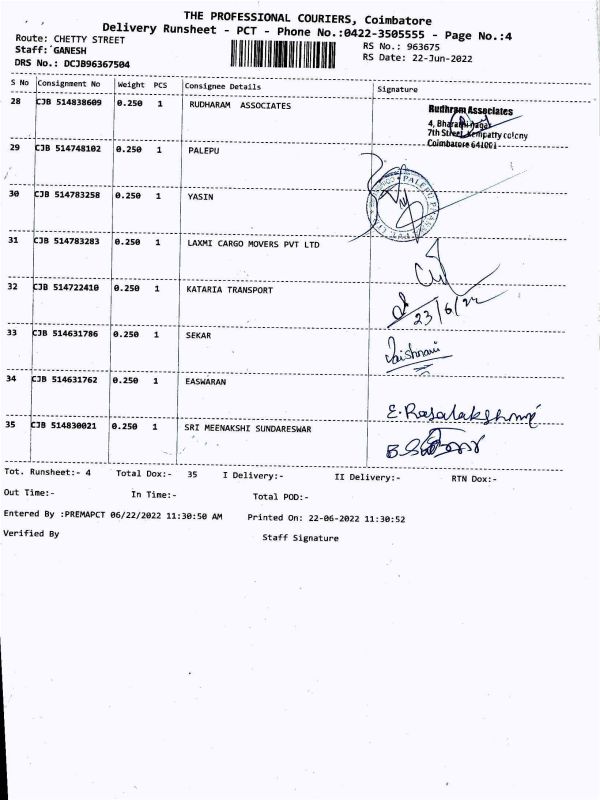 THE PROFESSIONAL COURIERS, Coimbatore
Delivery Runsheet - PCT - Phone No.:0422-3505555 - Page No.:4
Route: CHETTY STREET
Staff: GANESH
DRS No.: DCJB96367504
RS No.: 963675
RS Date: 22-Jun-2022
S No Consignment No Weight PCS Consignee Details Signature
28 CJB 514838609 0.250 1 RUDHARAM ASSOCIATES
Rudhram Associates
4, Bharathi nagar
7th Street, Kempatty colony
Coimbatore 641001
29 CJB 514748102 0.250 1 PALEPU
30 CJB 514783258 0.250 1 YASIN
31 CJB 514783283 0.250 1 LAXMI CARGO MOVERS PVT LTD
32 CJB 514722410 0.250 1 KATARIA TRANSPORT
23/6/22
33 CJB 514631786 0.250 1 SEKAR
Vaishnavi
34 CJB 514631762 0.250 1 EASWARAN
E. Rajalakshmi
35 CJB 514830021 0.250 1 SRI MEENAKSHI SUNDARESWAR
Tot. Runsheet:- 4 Total Dox:- 35 I Delivery:- II Delivery:- RTN Dox:-
Out Time:- In Time:- Total POD:-
Entered By :PREMAPCT 06/22/2022 11:30:50 AM Printed On: 22-06-2022 11:30:52
Verified By Staff Signature